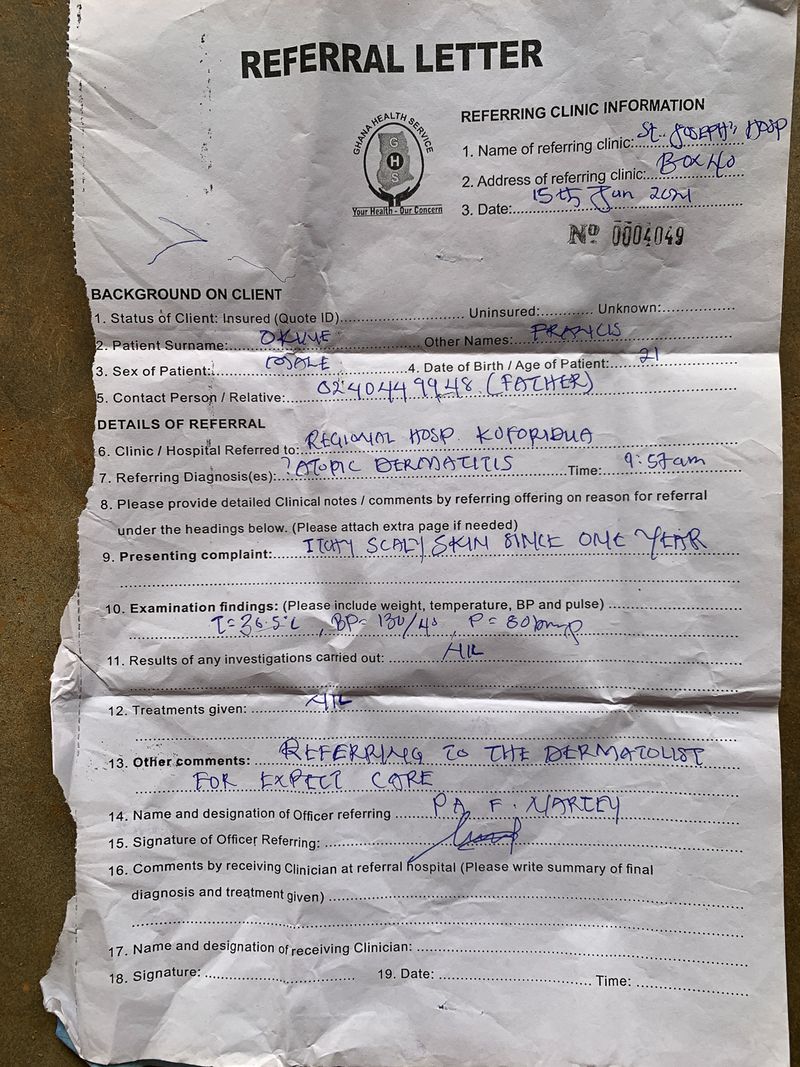 REFERRAL LETTER
GHANA HEALTH SERVICE
G
H
S
Your Health - Our Concern
REFERRING CLINIC INFORMATION
1. Name of referring clinic: St. JOSEPH'S HOSP
2. Address of referring clinic: BOX 40
3. Date: 15th Jan 2021
Nº 0004049
BACKGROUND ON CLIENT
1. Status of Client: Insured (Quote ID) Uninsured: Unknown:
2. Patient Surname: Other Names: FRANCIS
3. Sex of Patient: MALE 4. Date of Birth / Age of Patient: 21
5. Contact Person / Relative: 0240449948 (FATHER)
DETAILS OF REFERRAL
6. Clinic / Hospital Referred to: REGIONAL HOSP. KOFORIDUA
7. Referring Diagnosis(es): ?ATOPIC DERMATITIS Time: 9:57am
8. Please provide detailed Clinical notes / comments by referring offering on reason for referral
under the headings below. (Please attach extra page if needed)
9. Presenting complaint: ITCHY SCALY SKIN SINCE ONE YEAR
10. Examination findings: (Please include weight, temperature, BP and pulse)
T=36.5°C, BP= 130/40, P= 80bmp
11. Results of any investigations carried out: NIL
12. Treatments given: NIL
13. Other comments: REFERRING TO THE DERMATOLIST
FOR EXPECT CARE
14. Name and designation of Officer referring PA F. NARTEY
15. Signature of Officer Referring:
16. Comments by receiving Clinician at referral hospital (Please write summary of final
diagnosis and treatment given)
17. Name and designation of receiving Clinician:
18. Signature: 19. Date: Time: